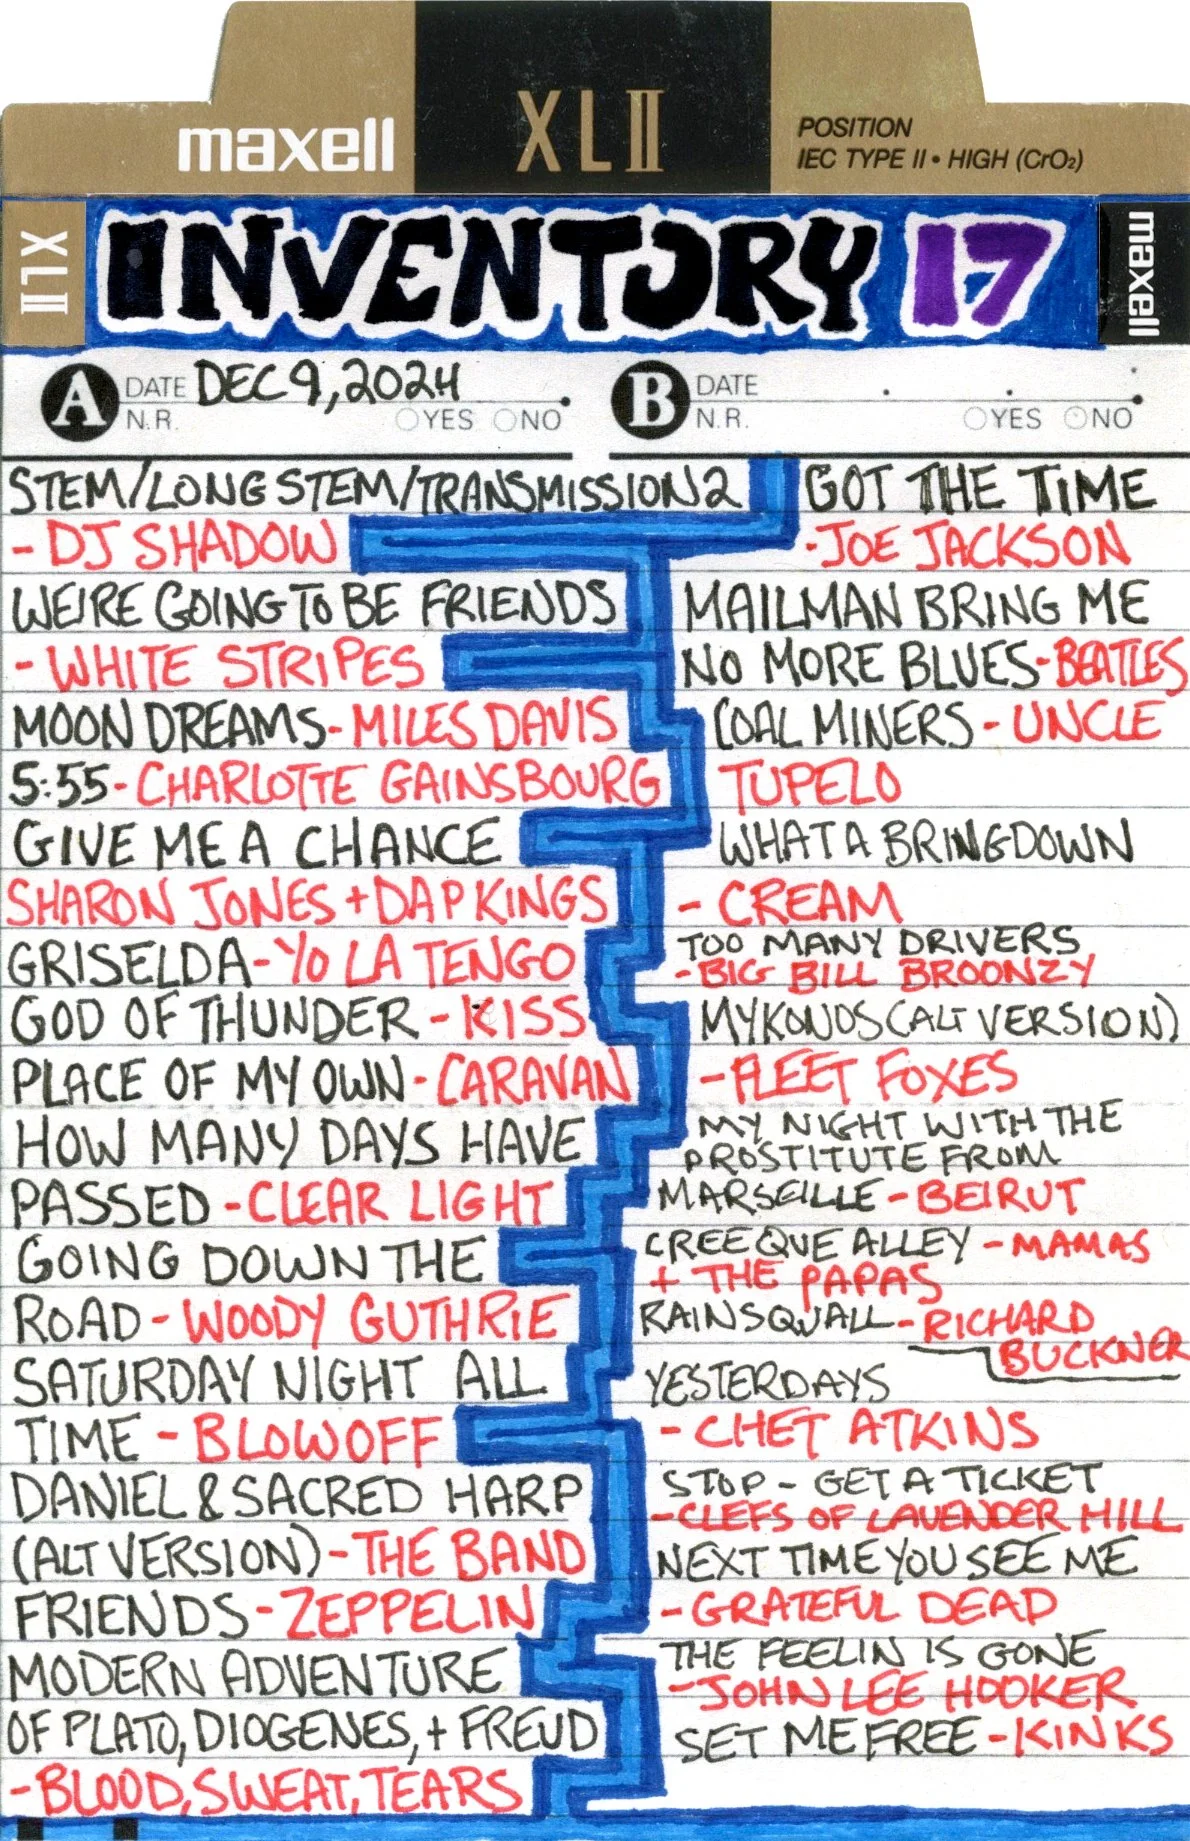 maxell
XLII
POSITION
IEC TYPE II • HIGH (CrO₂)
XLII
INVENTORY 17
maxell
A DATE DEC 9, 2024
N.R. YES NO
B DATE
N.R. YES NO
STEM/LONG STEM/TRANSMISSION 2
- DJ SHADOW
WE'RE GOING TO BE FRIENDS
- WHITE STRIPES
MOON DREAMS - MILES DAVIS
5:55 - CHARLOTTE GAINSBOURG
GIVE ME A CHANCE
SHARON JONES + DAP KINGS
GRISELDA - YO LA TENGO
GOD OF THUNDER - KISS
PLACE OF MY OWN - CARAVAN
HOW MANY DAYS HAVE
PASSED - CLEAR LIGHT
GOING DOWN THE
ROAD - WOODY GUTHRIE
SATURDAY NIGHT ALL
TIME - BLOWOFF
DANIEL & SACRED HARP
(ALT VERSION) - THE BAND
FRIENDS - ZEPPELIN
MODERN ADVENTURE
OF PLATO, DIOGENES, + FREUD
- BLOOD, SWEAT, TEARS
GOT THE TIME
- JOE JACKSON
MAILMAN BRING ME
NO MORE BLUES - BEATLES
COAL MINERS - UNCLE
TUPELO
WHAT A BRINGDOWN
- CREAM
TOO MANY DRIVERS
- BIG BILL BROONZY
MYKONOS (ALT VERSION)
- FLEET FOXES
MY NIGHT WITH THE
PROSTITUTE FROM
MARSEILLE - BEIRUT
CREEQUE ALLEY - MAMAS
+ THE PAPAS
RAINSQUALL - RICHARD
BUCKNER
YESTERDAYS
- CHET ATKINS
STOP - GET A TICKET
- CLEFS OF LAVENDER HILL
NEXT TIME YOU SEE ME
- GRATEFUL DEAD
THE FEELIN IS GONE
- JOHN LEE HOOKER
SET ME FREE - KINKS